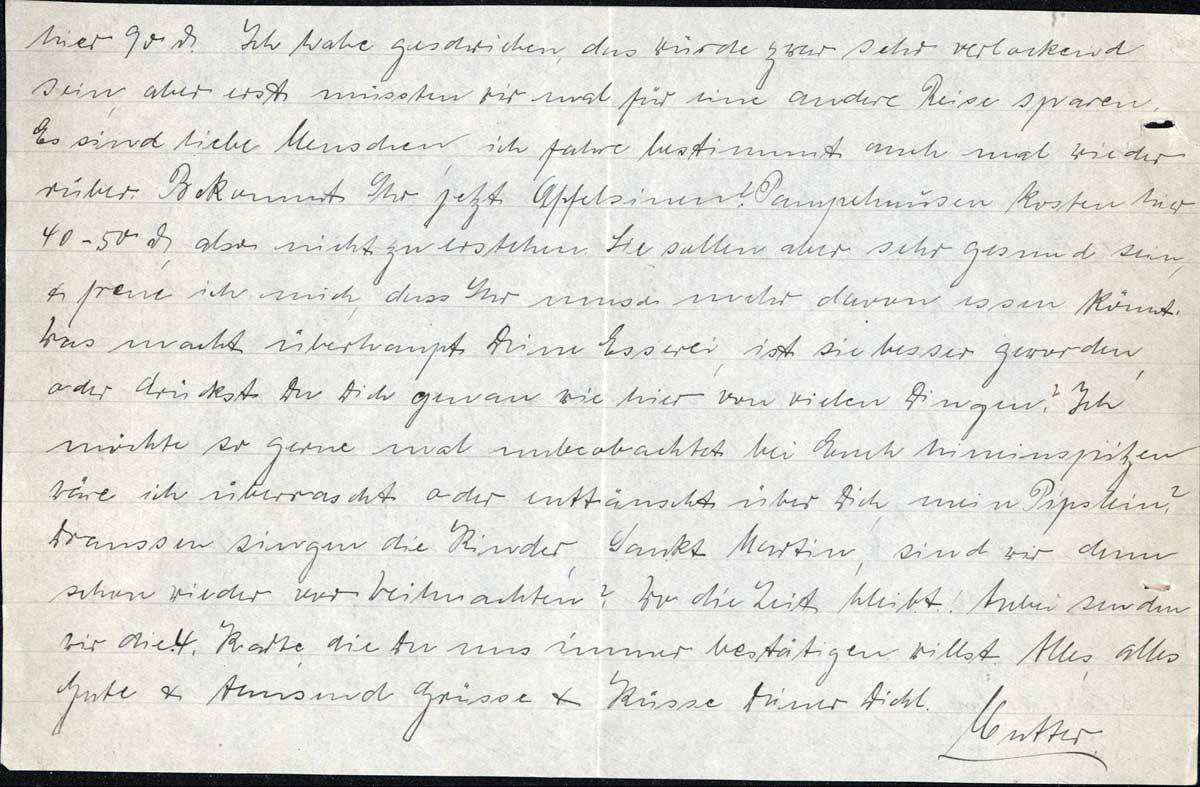 hier 90 d. Ich habe geschrieben, das würde zwar sehr verlockend
sein, aber erst müssten wir mal für eine andere Reise sparen.
Es sind liebe Menschen, ich fahre bestimmt auch mal wieder
rüber. Bekommt Ihr jetzt Apfelsinen? Pampelmusen kosten hier
40-50 d, also nicht zu erstehen. Sie sollen aber sehr gesund sein,
& freue ich mich, dass Ihr umso mehr davon essen könnt.
Was macht überhaupt Deine Esserei, ist sie besser geworden,
oder drückst Du Dich genau wie hier von vielen Dingen? Ich
möchte so gerne mal unbeobachtet bei Euch hineinspitzen
wäre ich überrascht oder enttäuscht über Dich, mein Pipslein?
Draussen singen die Kinder, Sankt Martin, sind wir denn
schon wieder vor Weihnachten? Wo die Zeit bleibt! Anbei senden
wir die 4. Karte, die Du uns immer bestätigen willst. Alles, alles
Gute & tausend Grüsse & Küsse Deiner Dichl.
Mutter.